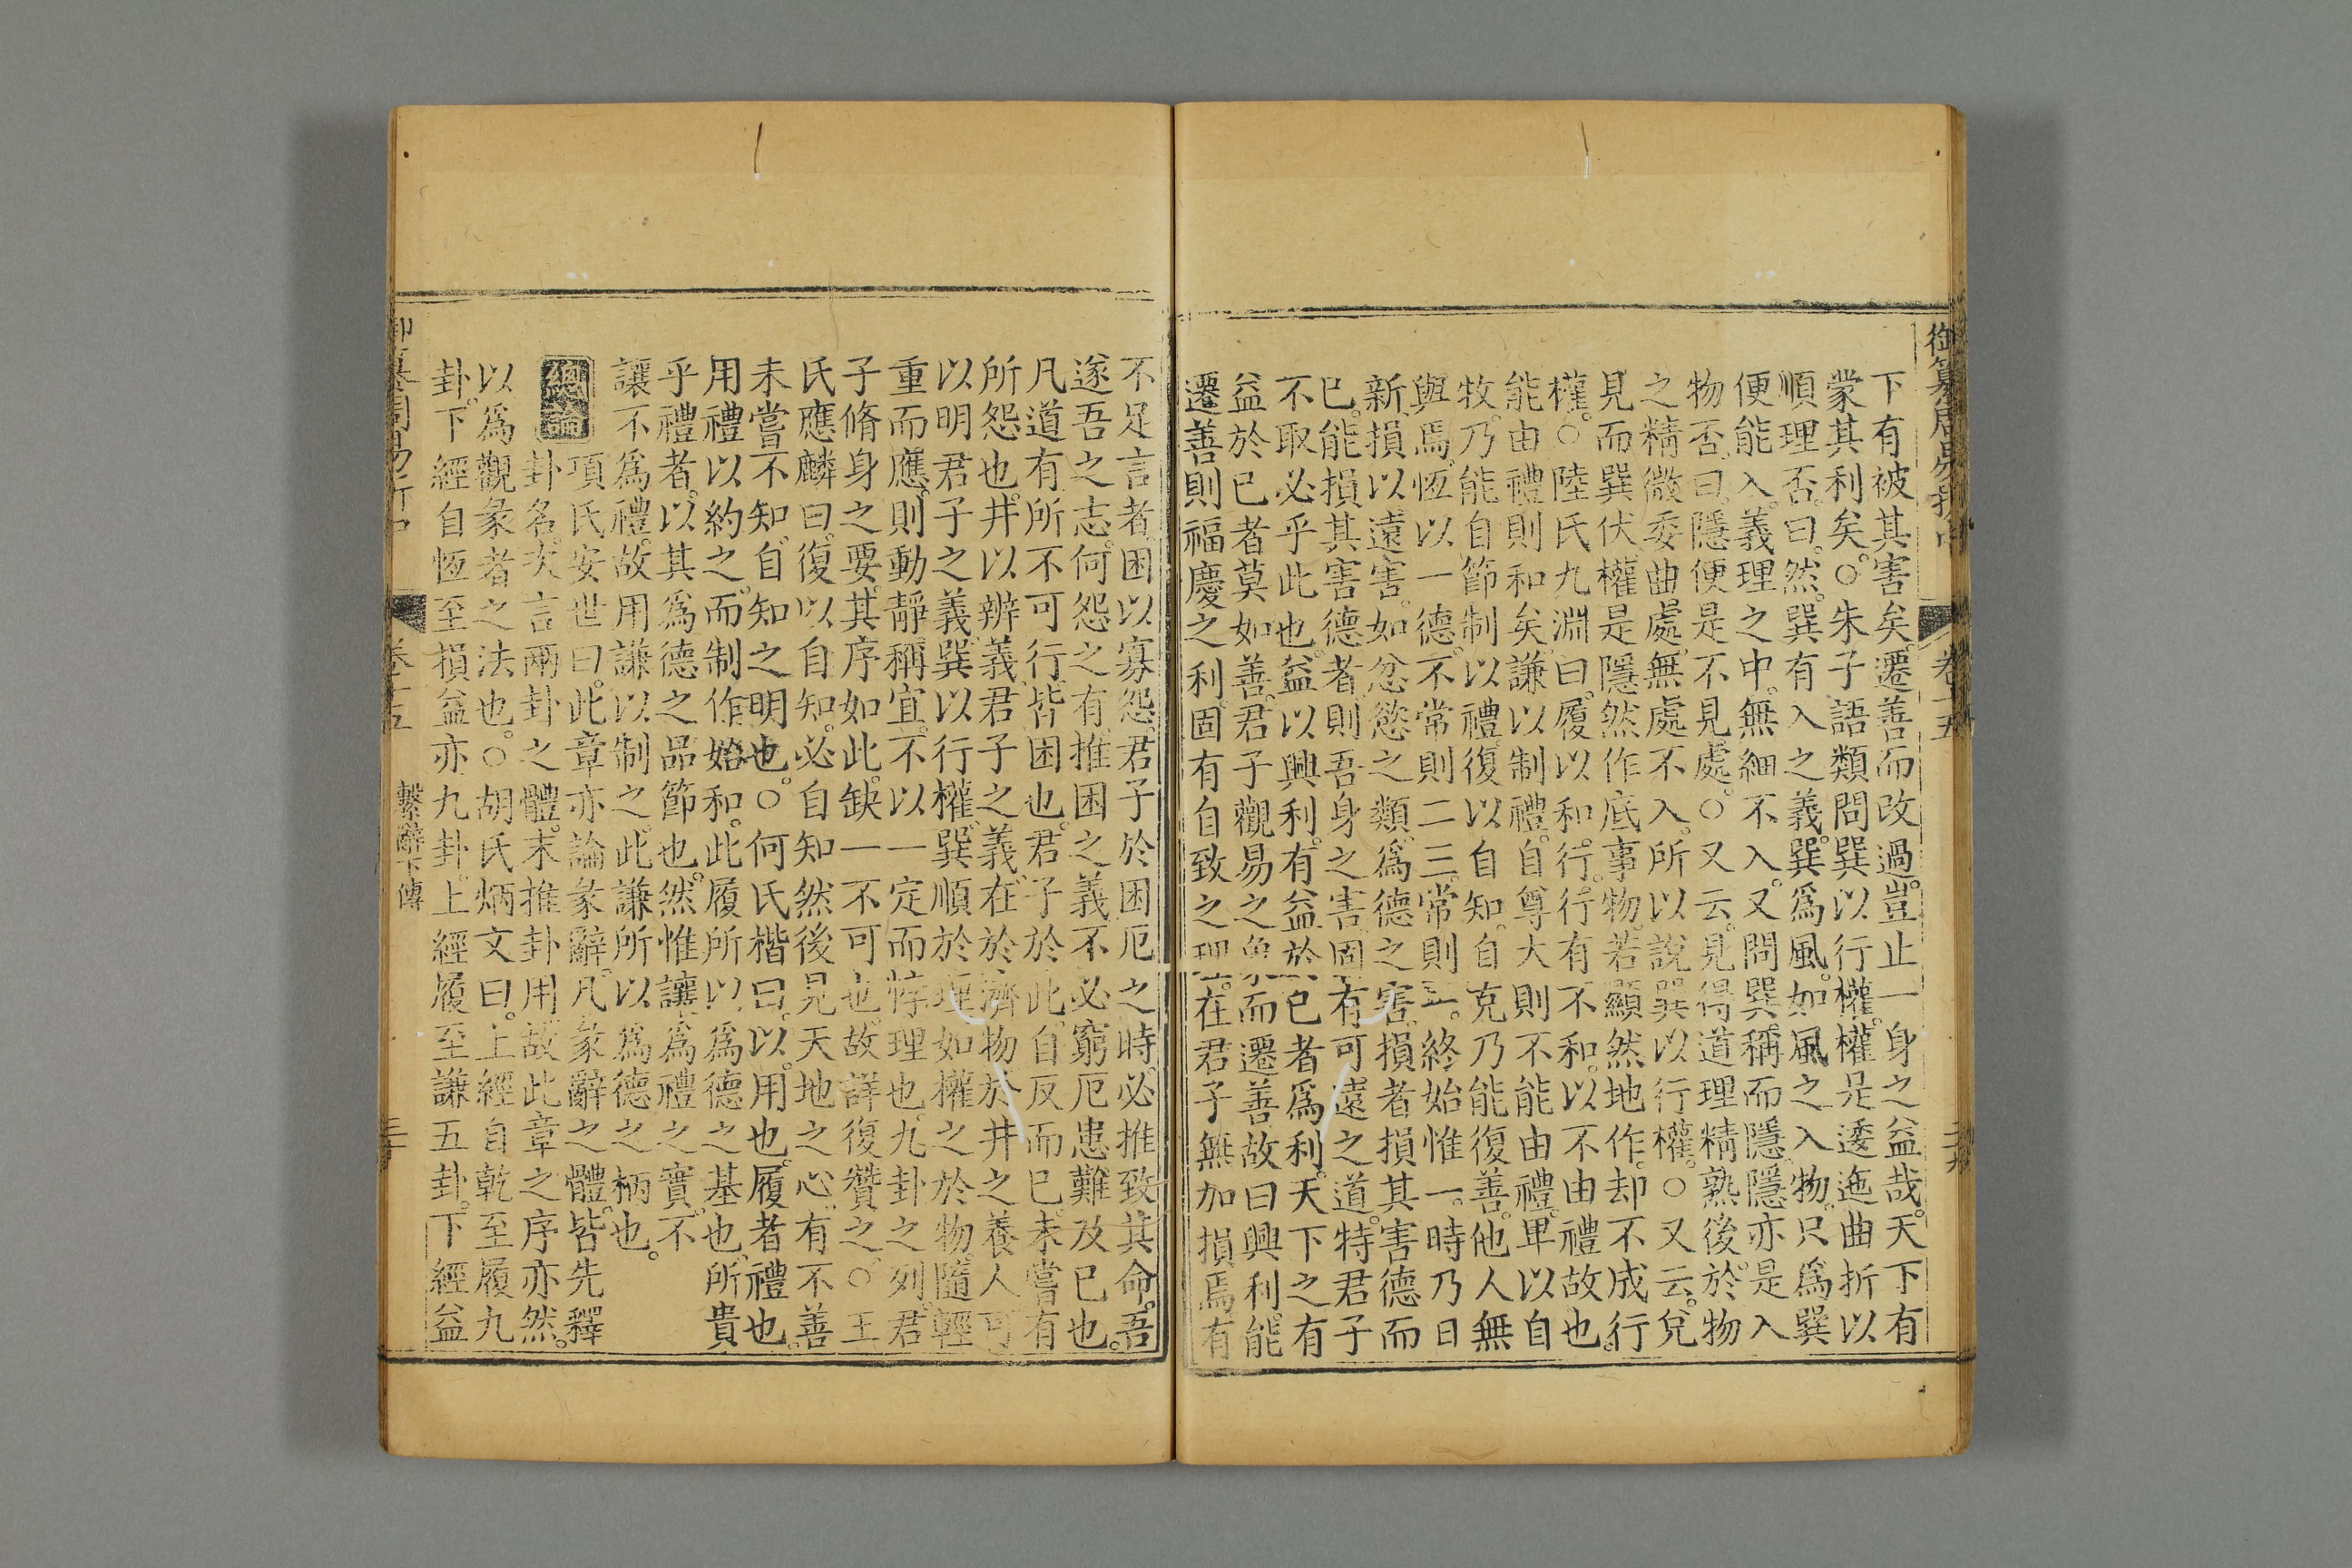 御纂周易折中
卷十五
下有被其害矣遷善而改過豈止一身之益哉天下有
蒙其利矣○朱子語類問巽以行權權是逶迤曲折以
順理否曰然巽有入之義巽爲風如風之入物只爲巽
便能入義理之中無細不入又問巽稱而隱隱亦是入
物否曰隱便是不見處○又云見得道理精熟後於物
之精微委曲處無處不入所以說巽以行權○又云兌
見而巽伏權是隱然作底事物若顯然地作却不成行
權○陸氏九淵曰履以和行行有不和以不由禮故也
能由禮則和矣謙以制禮自尊大則不能由禮卑以自
牧乃能自節制以禮復以自知自克乃能復善他人無
與焉恆以一德不常則二三常則一終始惟一時乃日
新損以遠害如忿慾之類爲德之害損者損其害德而
已能損其害德者則吾身之害固有可遠之道特君子
不取必乎此也益以興利有益於已者爲利天下之有
益於已者莫如善君子觀易之象而遷善故曰興利能
遷善則福慶之利固有自致之理在君子無加損焉有
不足言者困以寡怨君子於困厄之時必推致其命吾
遂吾之志何怨之有推困之義不必窮厄患難及已也
凡道有所不可行皆困也君子於此自反而已未嘗有
所怨也井以辨義君子之義在於濟物於井之養人可
以明君子之義巽以行權巽順於理如權之於物隨輕
重而應則動靜稱宜不以一定而悖理也九卦之列君
子脩身之要其序如此缺一不可也故詳復贊之○王
氏應麟曰復以自知必自知然後見天地之心有不善
未嘗不知自知之明也○何氏楷曰以用也履者禮也
用禮以約之而制作始和此履所以爲德之基也所貴
乎禮者以其爲德之品節也然惟讓爲禮之實不
讓不爲禮故用謙以制之此謙所以爲德之柄也
總論 項氏安世曰此章亦論彖辭凡彖辭之體皆先釋
卦名次言兩卦之體末推卦用故此章之序亦然
以爲觀彖者之法也○胡氏炳文曰上經自乾至履九
卦下經自恆至損益亦九卦上經履至謙五卦下經益
卷十五
繫辭下傳